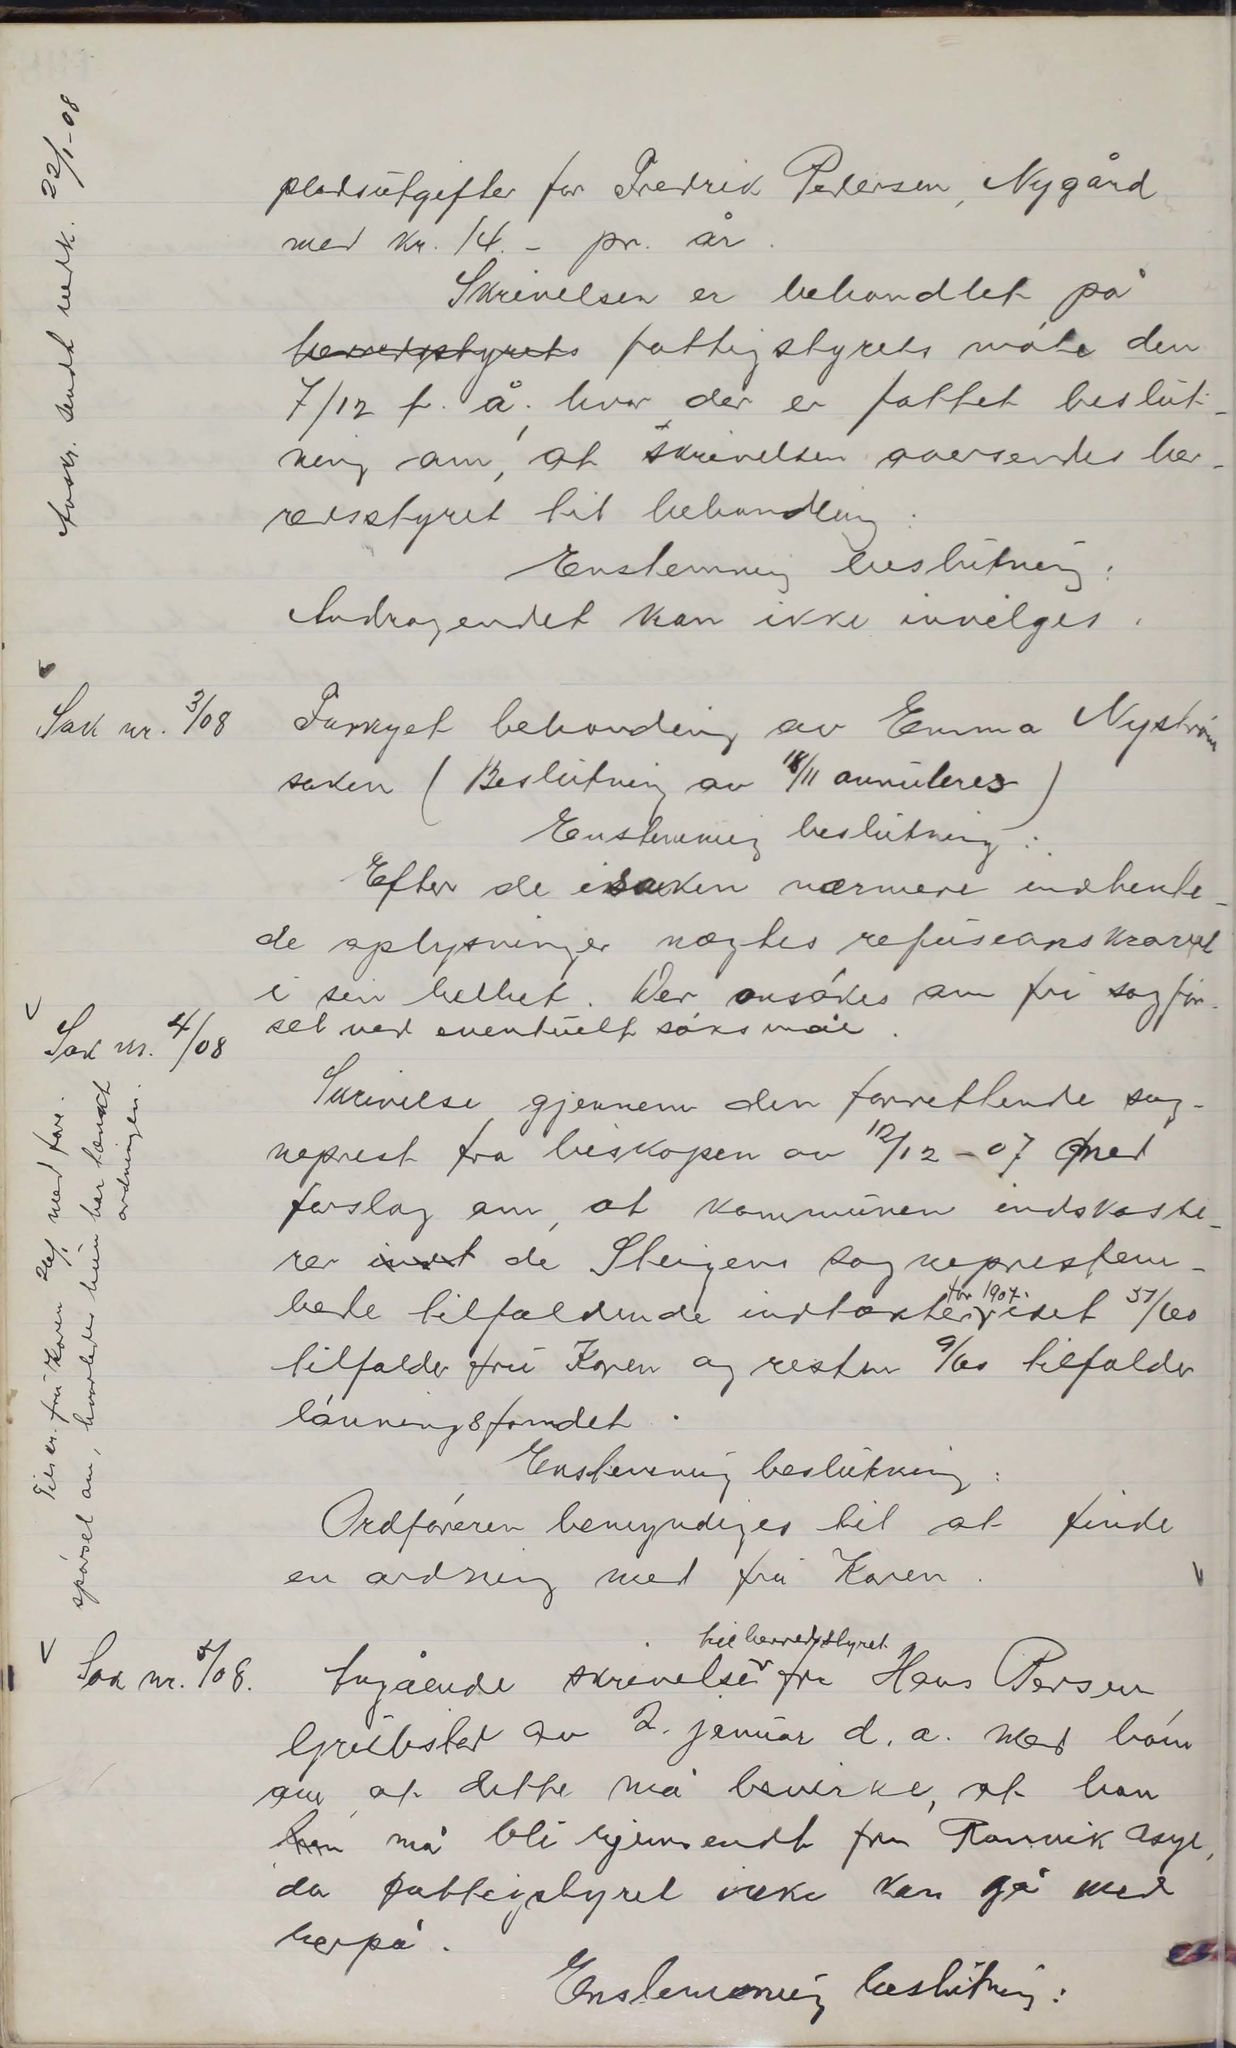 pladsutgifter for Fredrik Pedersen, Nygård
med kr. 14.- pr. år.
Skrivelsen er behandlet på
herredsstyrets fattigstyrets møte den
7/12 f. å. hvor der er fattet beslut-
ning om, at skrivelsen oversendes her-
redsstyret til behandling:
Enstemmig beslutning:
Andragendet kan ikke invilges.
Avskr. sendt vedk. 22/1-08
Sak nr. 3/08
Fornyet behandling av Emma Nyström
saken (Beslutning av 18/11 annuleres)
Enstemmig beslutning:
Efter de i saken nærmere indhente-
de oplysninger nægtes refusionskravet
i sin helhet. Der ansökes om fri sagför-
sel ved eventuelt söksmål.
Sak nr. 4/08
Skrivelse gjennem den forrettende sog-
neprest fra biskopen av 12/12-07 med
forslag om, at kommunen indskaste-
rer indt de Steigens sogneprestem-
bede tilfaldende indtækter for 1907. viset 51/60
tilfalder fru Koren og resten 9/60 tilfalder
lönningsfondet.
Enstemmig beslutning:
Ordföreren bemyndiges til at finde
en ordning med fru Koren.
Tilskr. fru Koren 26/1 med fore.
spörsel om, hvorledes hun har tænkt
ordningen.
Sak nr. 5/08.
Angående skrivelse til herredsstyret fra Hans Persen
Grübstad av 2. januar d. a. med bön
om at dette må bevirke, at han
han må bli hjemsendt fra Rønvik asyl,
da fattigstyret ikke kan gå med
herpå.
Enstemmig beslutning: